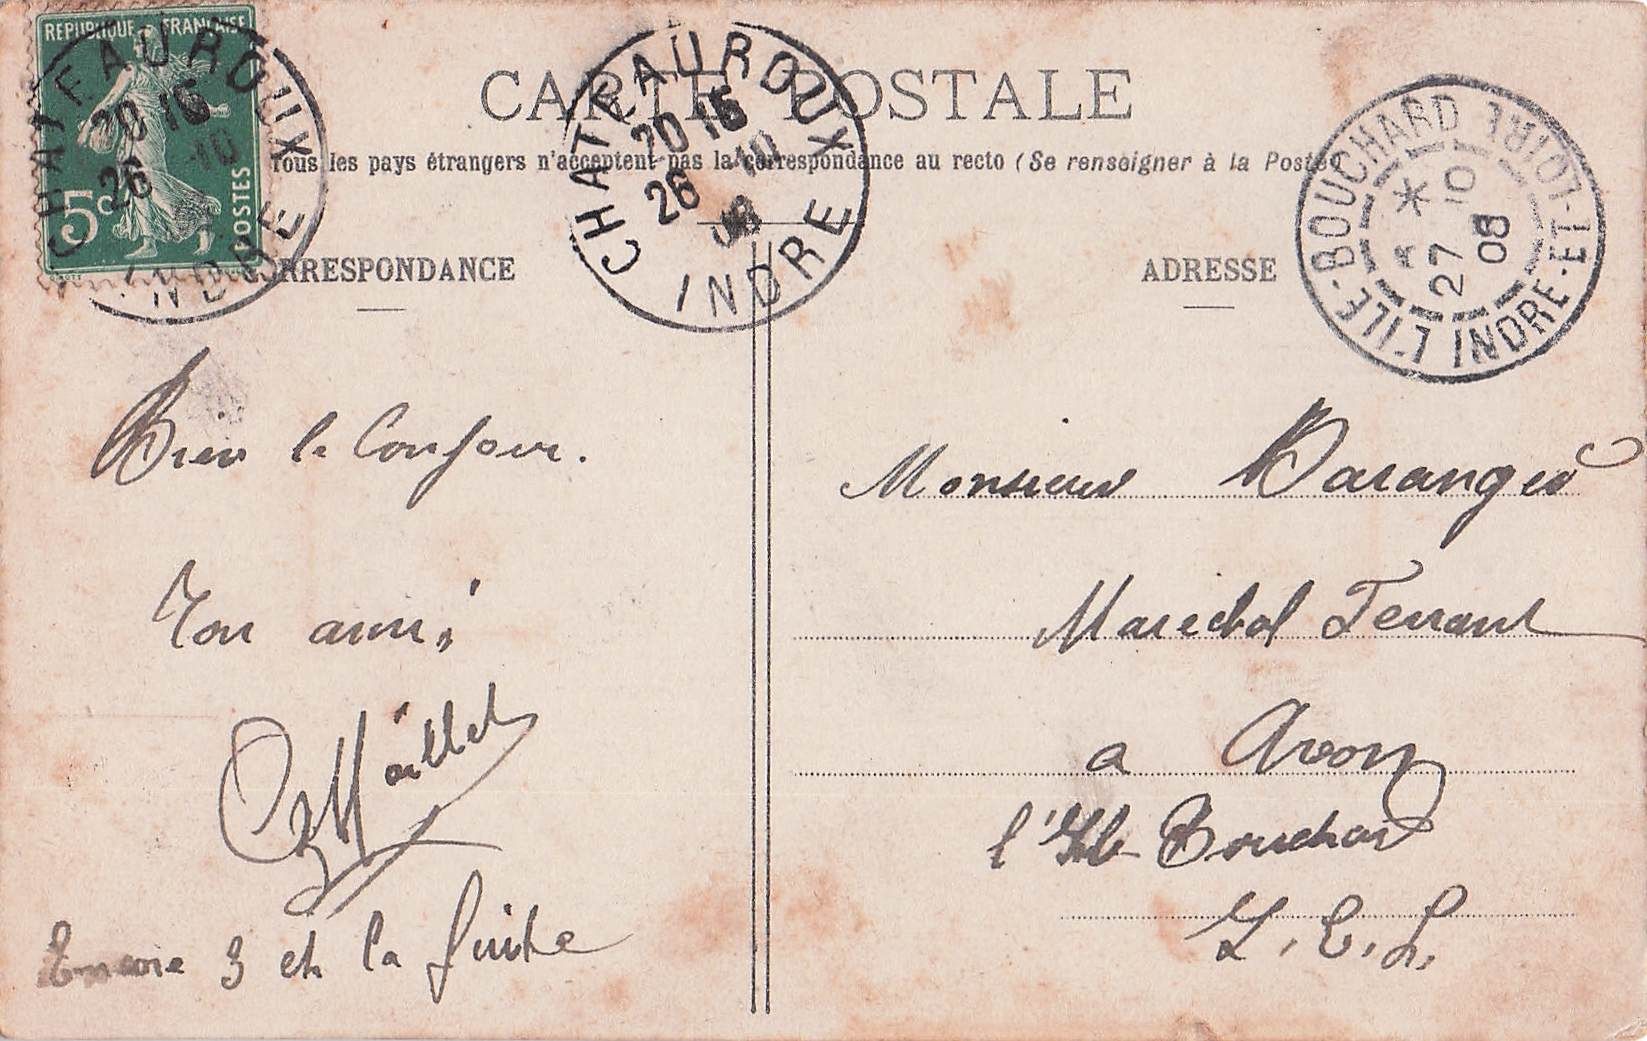 REPUBLIQUE FRANÇAISE
5c POSTES
CHATEAUROUX
20 15
26 10
INDRE
CARTE POSTALE
Tous les pays étrangers n'acceptent pas la correspondance au recto (Se renseigner à la Poste)
CHATEAUROUX
20 15
26 10
08
INDRE
L'ILE-BOUCHARD INDRE-ET-LOIRE
27 10
08
CORRESPONDANCE
ADRESSE
Bien le Conjour.
Ton ami,
Maillet
Encore 3 et la fuite
Monsieur Baranger
Marechal Ferrant
a Avon
l'Ile Bouchard
I. E. L.